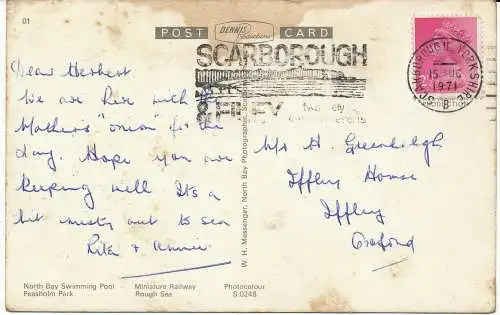 01
POST CARD
DENNIS
Productions
SCARBOROUGH
& FILEY
SCARBOROUGH YORKSHIRE
15 AUG
1971
B
Dear Herbert
We are here with
Mothers' "union" for the
day. Hope you are
keeping well Its a
bit misty out to sea
Rita +
W. H. Messenger, North Bay Photographer, Scarborough
Mr H. Greenhalgh
Iffley House
Iffley
Oxford
North Bay Swimming Pool
Peasholm Park
Miniature Railway
Rough Sea
Photocolour
S.0248